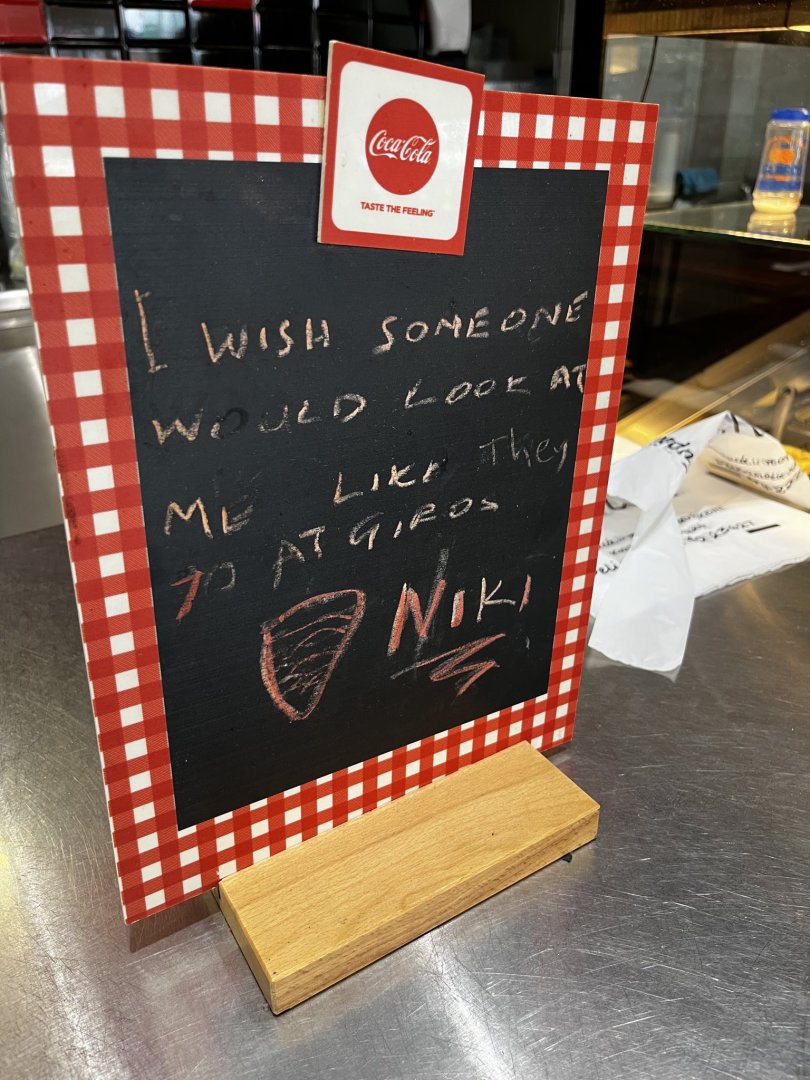 Coca-Cola
TASTE THE FEELING
I WISH SOMEONE
WOULD LOOK AT
ME LIKE They
DO AT GIROS
NIKI